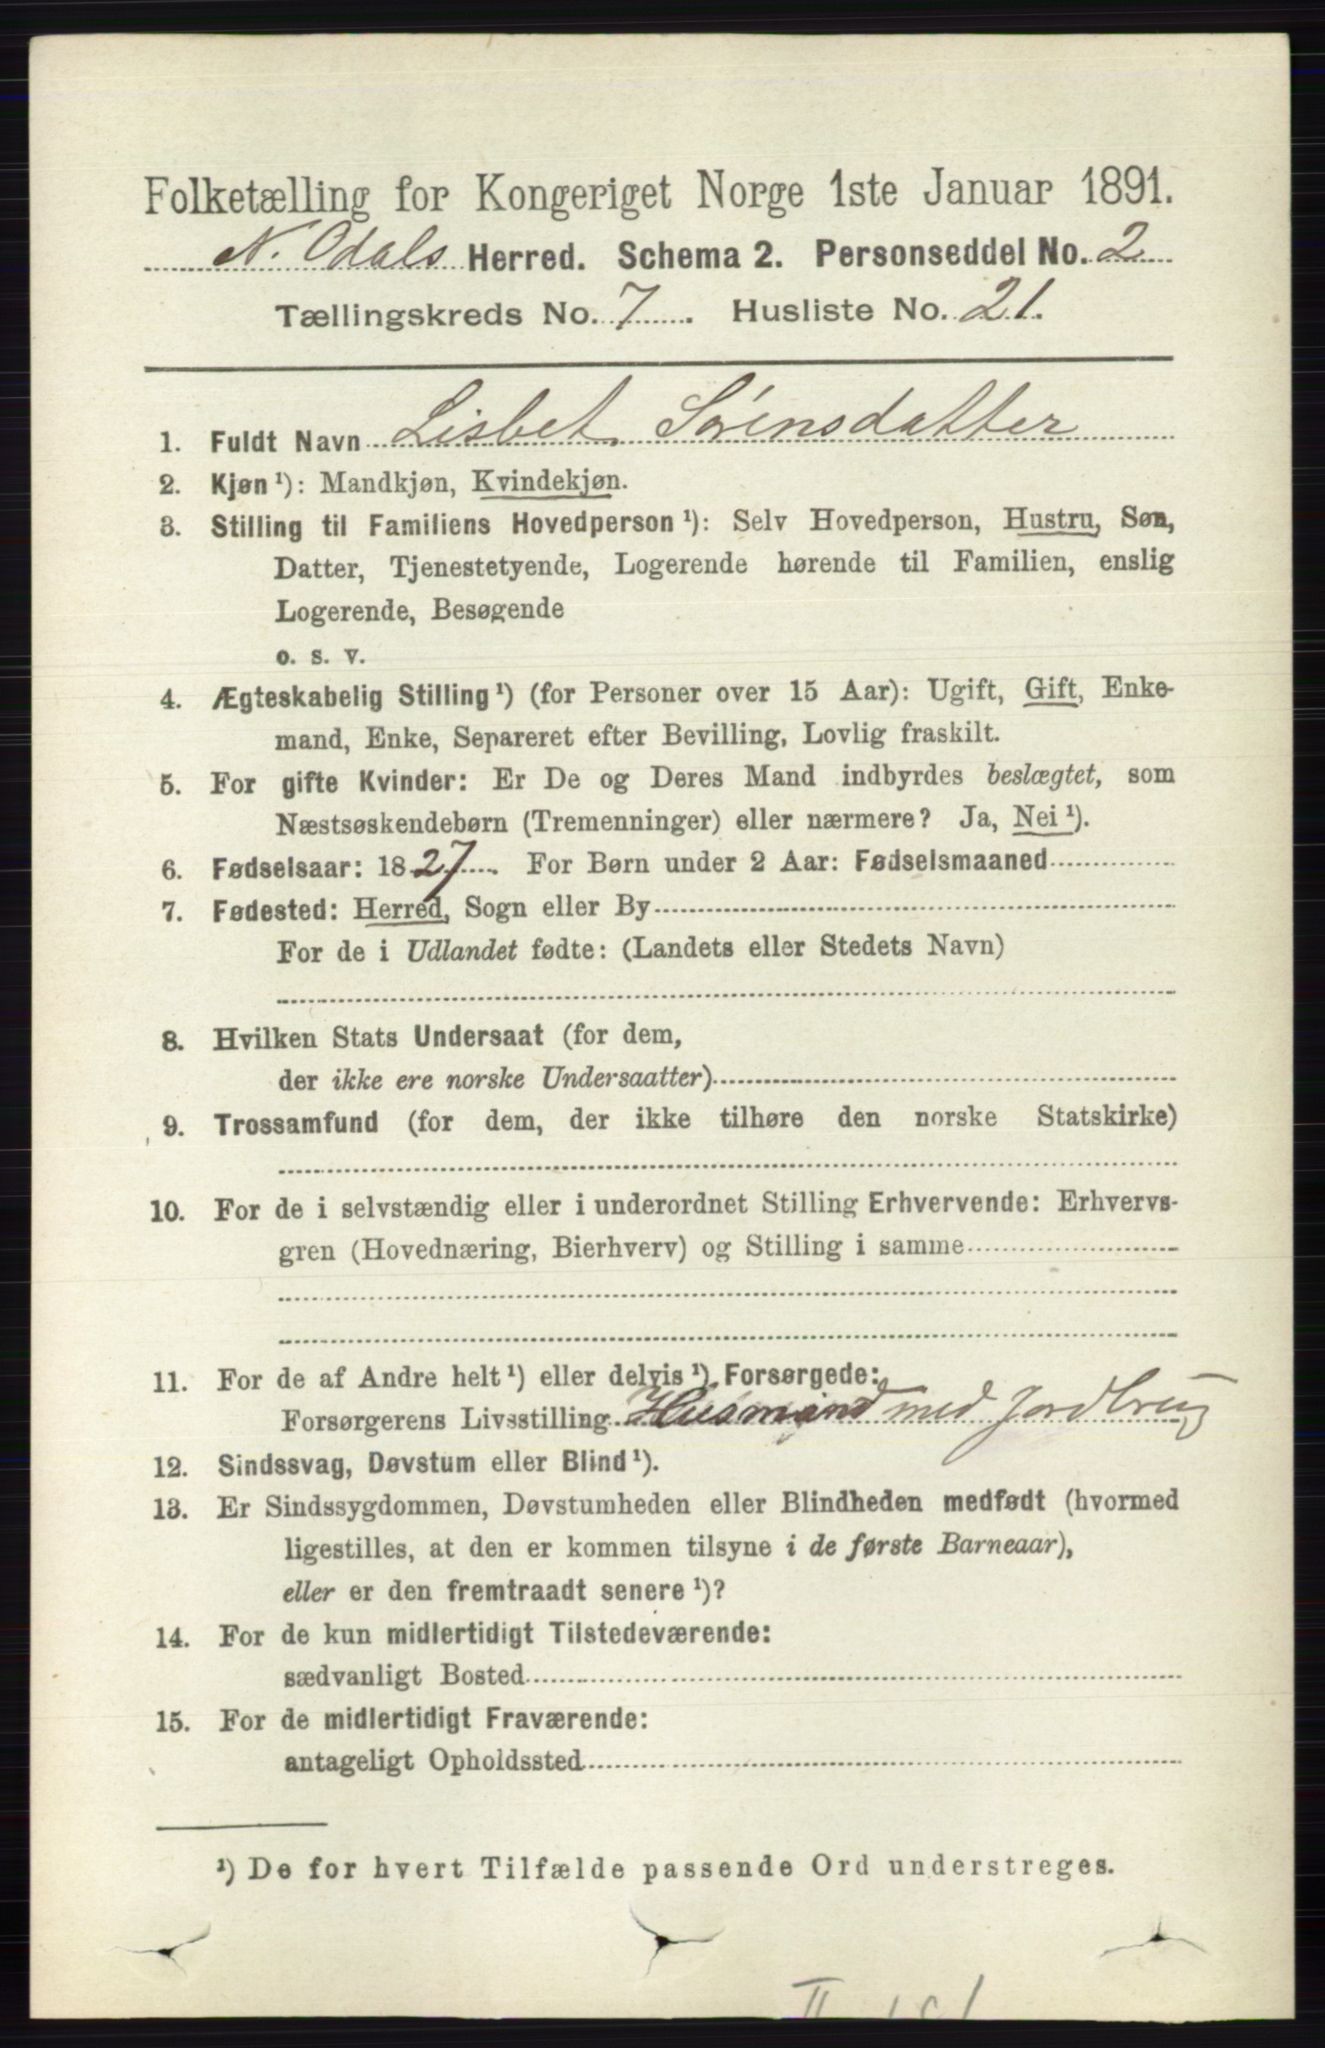 Folketælling for Kongeriget Norge 1ste Januar 1891.
N. Odals Herred. Schema 2. Personseddel No. 2
Tællingskreds No. 7. Husliste No. 21.
1. Fuldt Navn Lisbet Sørensdatter
2. Kjøn ¹): Mandkjøn, Kvindekjøn.
3. Stilling til Familiens Hovedperson ¹): Selv Hovedperson, Hustru, Søn,
Datter, Tjenestetyende, Logerende hørende til Familien, enslig
Logerende, Besøgende
o. s. v.
4. Ægteskabelig Stilling ¹) (for Personer over 15 Aar): Ugift, Gift, Enke-
mand, Enke, Separeret efter Bevilling, Lovlig fraskilt.
5. For gifte Kvinder: Er De og Deres Mand indbyrdes beslægtet, som
Næstsøskendebørn (Tremenninger) eller nærmere? Ja, Nei ¹).
6. Fødselsaar: 1827. For Børn under 2 Aar: Fødselsmaaned
7. Fødested: Herred, Sogn eller By
For de i Udlandet fødte: (Landets eller Stedets Navn)
8. Hvilken Stats Undersaat (for dem,
der ikke ere norske Undersaatter)
9. Trossamfund (for dem, der ikke tilhøre den norske Statskirke)
10. For de i selvstændig eller i underordnet Stilling Erhvervende: Erhvervs-
gren (Hovednæring, Bierhverv) og Stilling i samme
11. For de af Andre helt ¹) eller delvis ¹) Forsørgede:
Forsørgerens Livsstilling Husmand med Jordbrug
12. Sindssvag, Døvstum eller Blind ¹).
13. Er Sindssygdommen, Døvstumheden eller Blindheden medfødt (hvormed
ligestilles, at den er kommen tilsyne i de første Barneaar),
eller er den fremtraadt senere ¹)?
14. For de kun midlertidigt Tilstedeværende:
sædvanligt Bosted
15. For de midlertidigt Fraværende:
antageligt Opholdssted
¹) De for hvert Tilfælde passende Ord understreges.